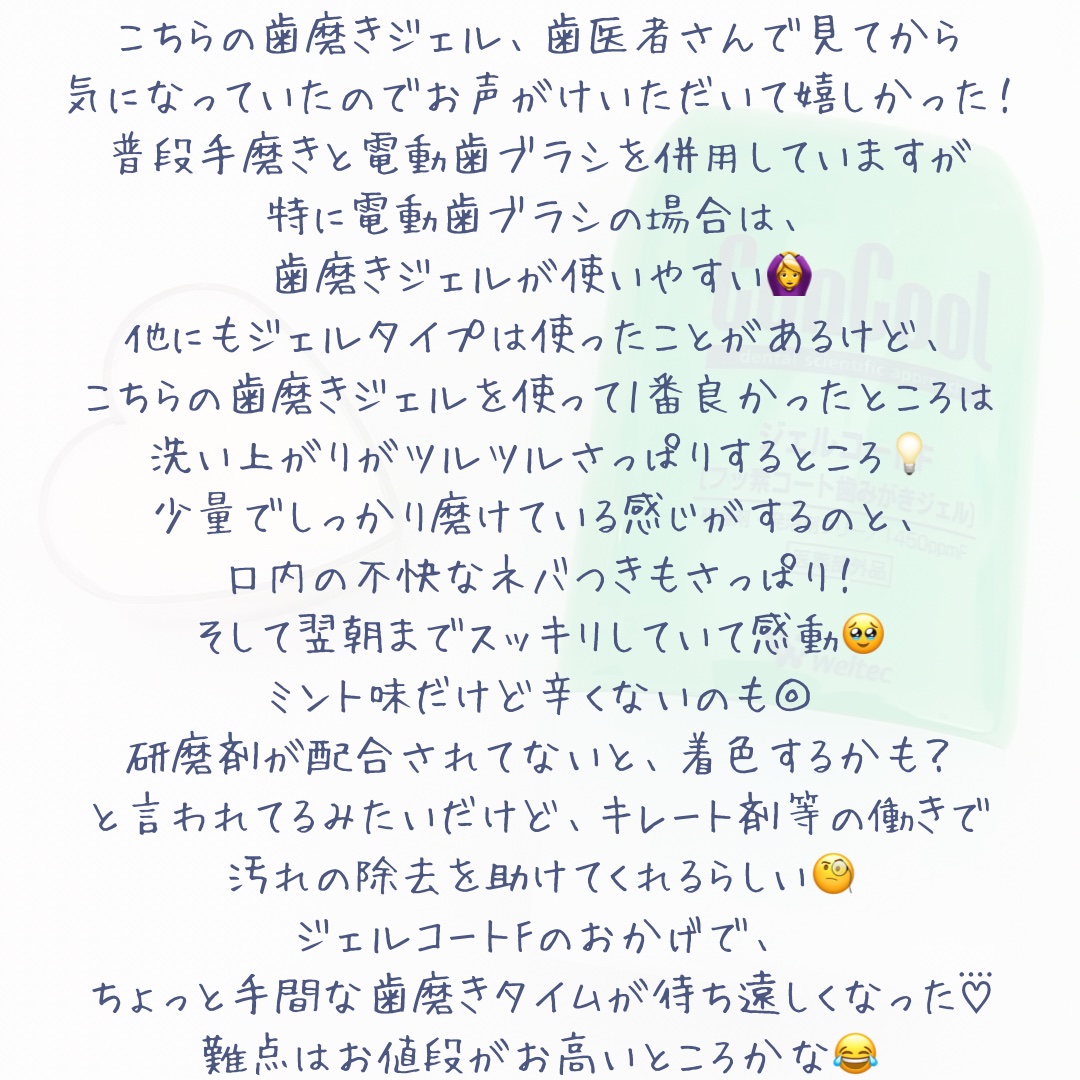 こちらの歯磨きジェル、歯医者さんで見てから
気になっていたのでお声がけいただいて嬉しかった！
普段手磨きと電動歯ブラシを併用していますが
特に電動歯ブラシの場合は、
歯磨きジェルが使いやすい🙆‍♀️
他にもジェルタイプは使ったことがあるけど、
こちらの歯磨きジェルを使って1番良かったところは
洗い上がりがツルツルさっぱりするところ💡
少量でしっかり磨けている感じがするのと、
口内の不快なネバつきもさっぱり！
そして翌朝までスッキリしていて感動🥹
ミント味だけど辛くないのも◎
研磨剤が配合されてないと、着色するかも？
と言われてるみたいだけど、キレート剤等の働きで
汚れの除去を助けてくれるらしい🧐
ジェルコートFのおかげで、
ちょっと手間な歯磨きタイムが待ち遠しくなった♡
難点はお値段がお高いところかな😂
ConCool
dental scientific
ジェルコートF
[フッ素コート歯みがきジェル]
1450ppmF
医薬部外品
Weltec